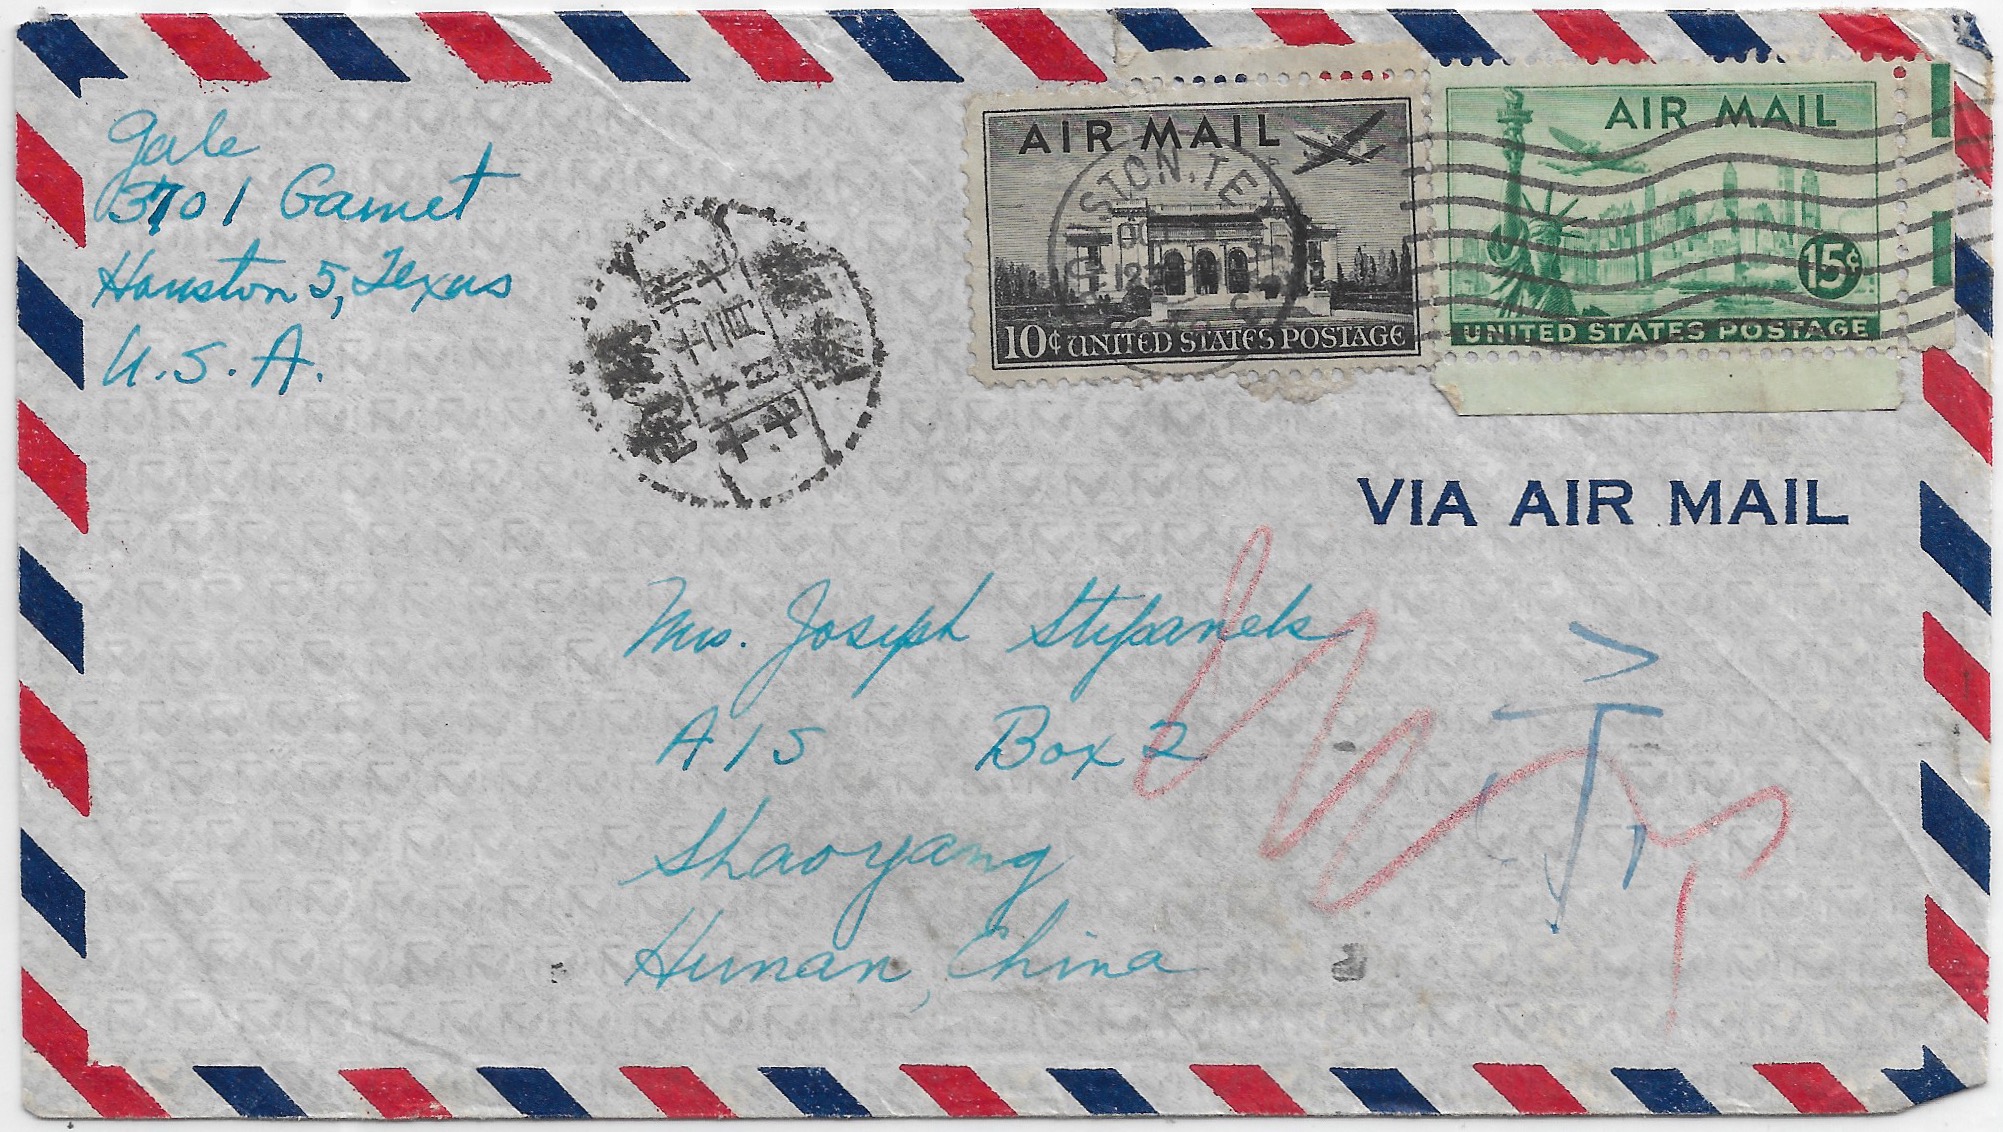 Gale
3701 Garnet
Houston 5, Texas
U.S.A.
AIR MAIL
10¢ UNITED STATES POSTAGE
AIR MAIL
15¢
UNITED STATES POSTAGE
STON, TEX
VIA AIR MAIL
Mrs. Joseph Stepanek
A15 Box 2
Shaoyang
Hunan, China